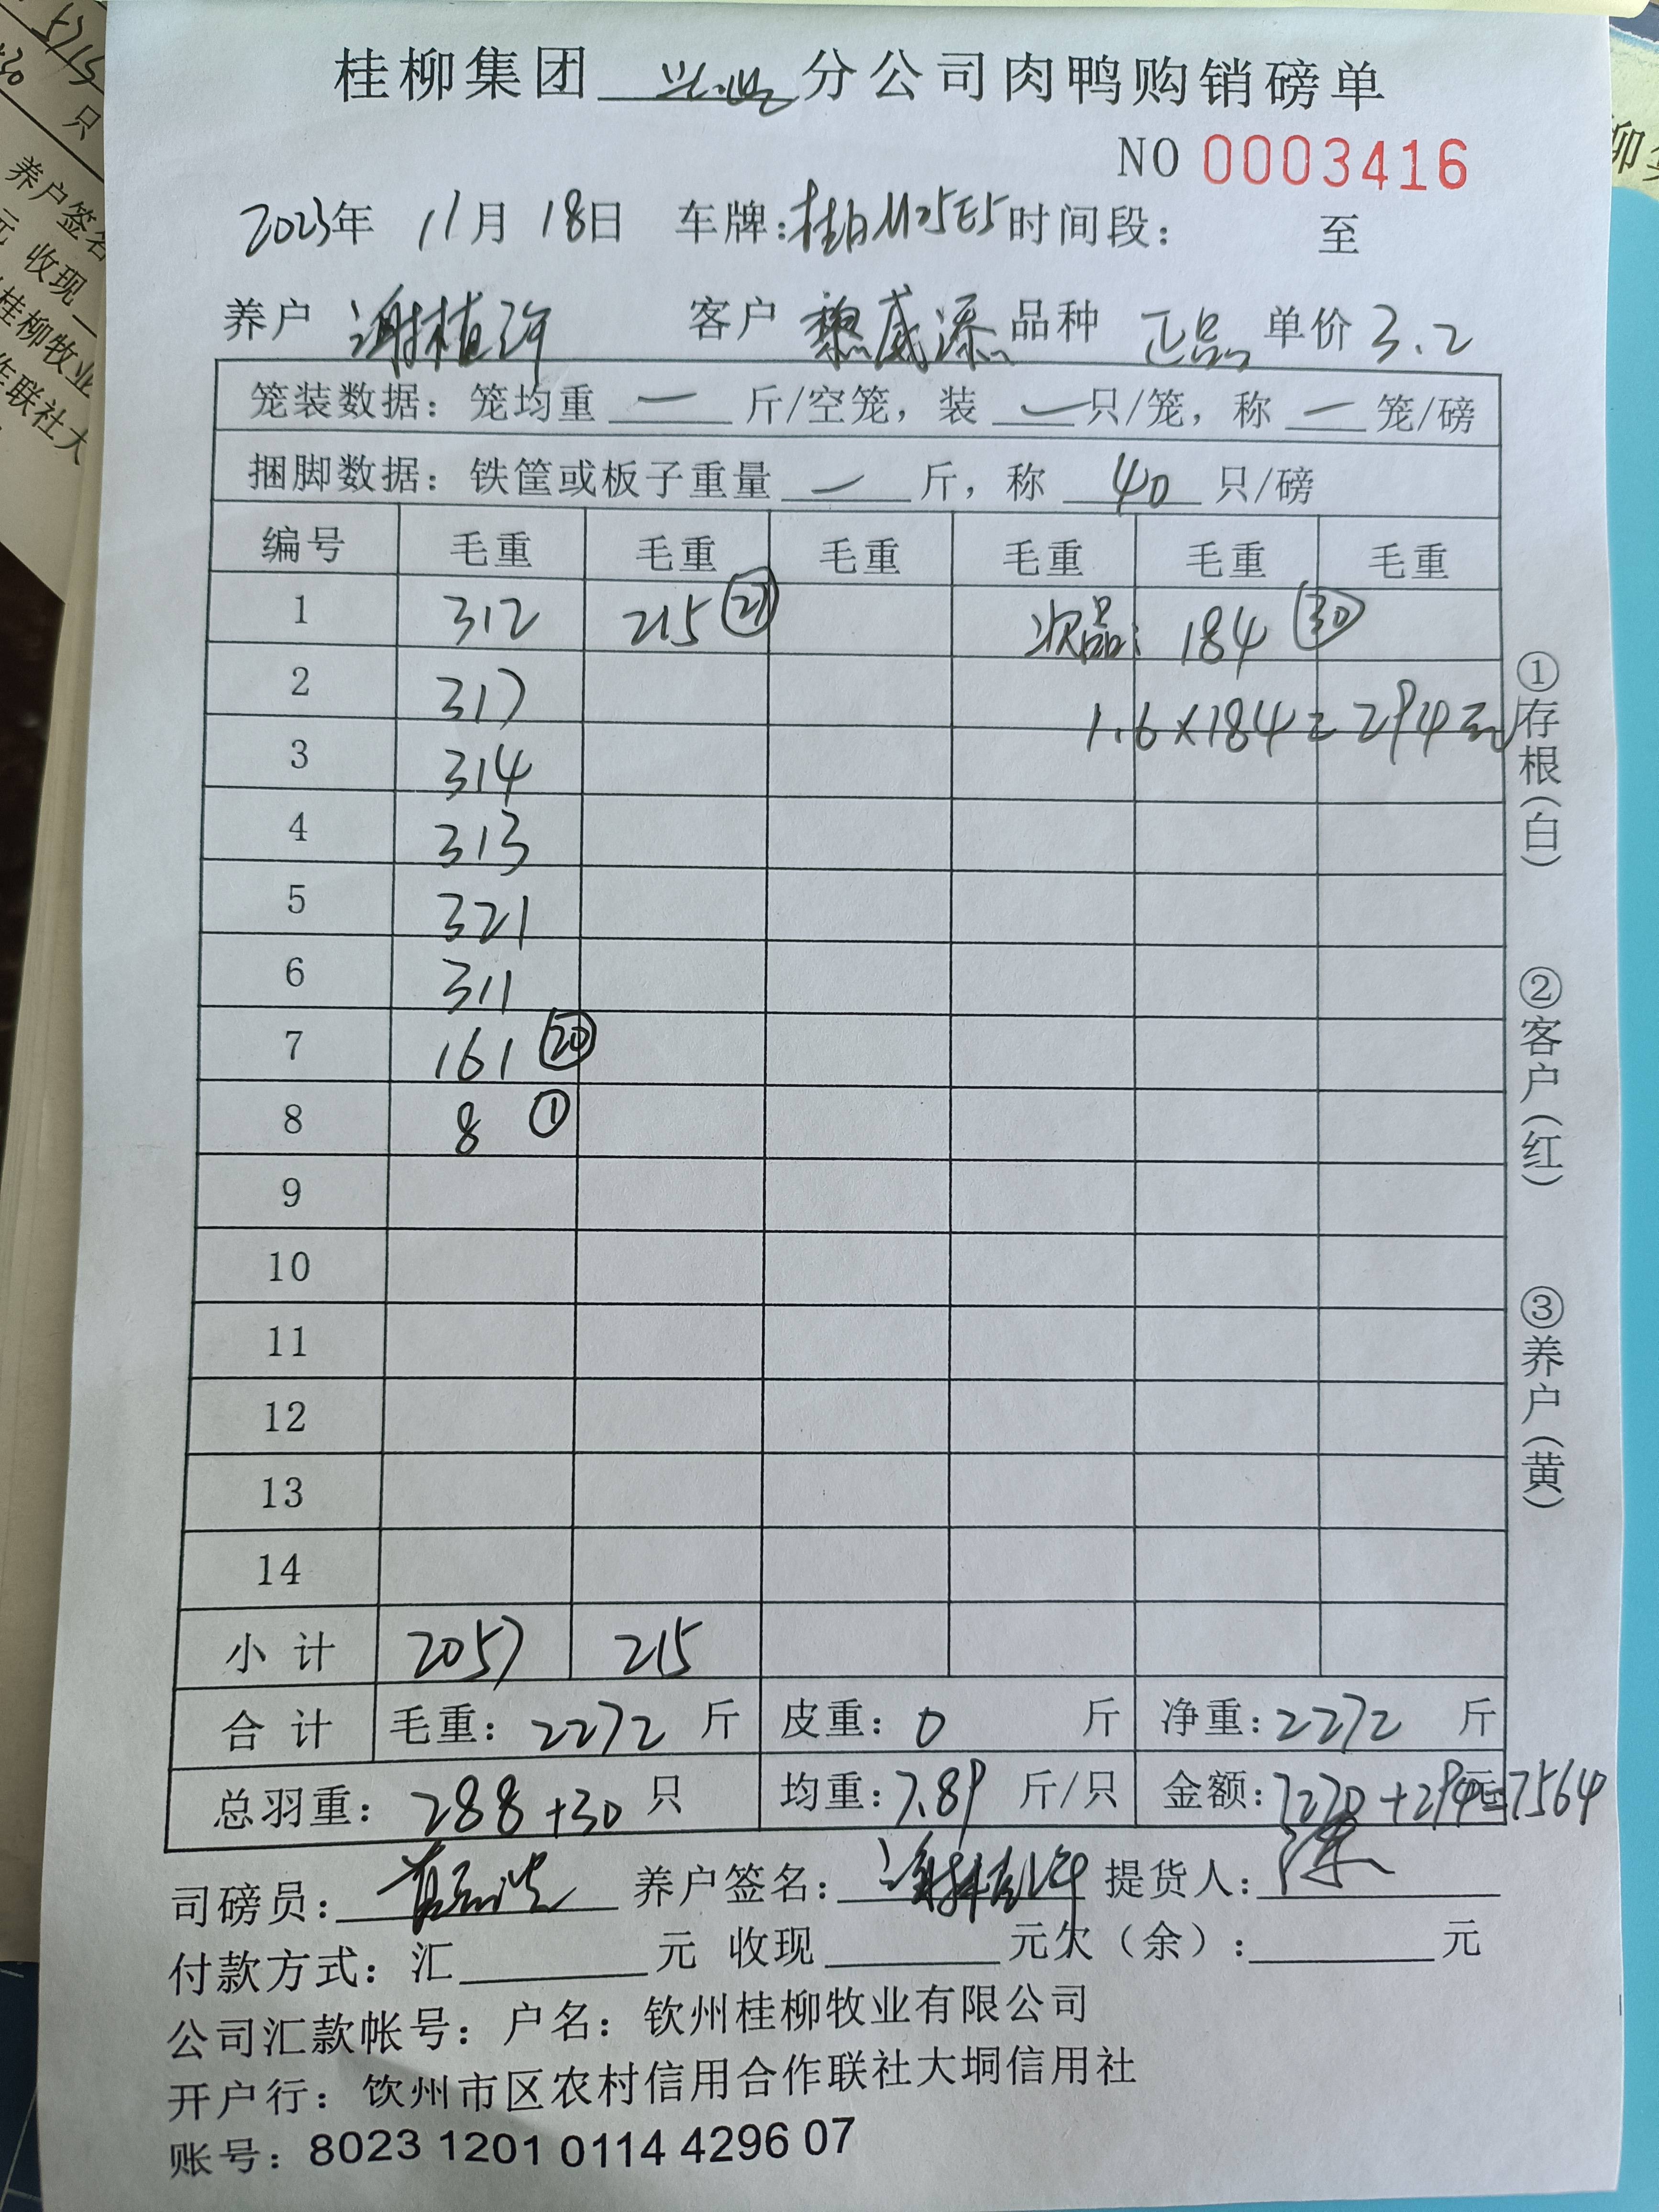 桂柳集团 分公司肉鸭购销磅单
NO 0003416
2023年 11月 18日 车牌:桂 M25E5 时间段: 至
养户 谢植许 客户 黎威添 品种 正品 单价 3.2
笼装数据:笼均重 — 斤/空笼,装 — 只/笼,称 — 笼/磅
捆脚数据:铁筐或板子重量 — 斤,称 40 只/磅
编号 毛重 毛重 毛重 毛重 毛重 毛重
1 312 215 ㉗ 次品: 184 ㉚
2 317
1.6×184=294元
3 314
4 313
5 321
6 311
7 161 ⑳
8 8 ①
9
10
11
12
13
14
小计 2057 215
合计 毛重:2272 斤 皮重:0 斤 净重:2272 斤
总羽重:288+30 只 均重:7.89 斤/只 金额:7270+294元=7564
司磅员: 养户签名:谢植许 提货人:
付款方式:汇 元 收现 元欠(余): 元
公司汇款帐号:户名:钦州桂柳牧业有限公司
开户行:钦州市区农村信用合作联社大垌信用社
账号:8023 1201 0114 4296 07
①存根(白)
②客户(红)
③养户(黄)
5715
只
养户签名
元 收现
桂柳牧业
作联社大